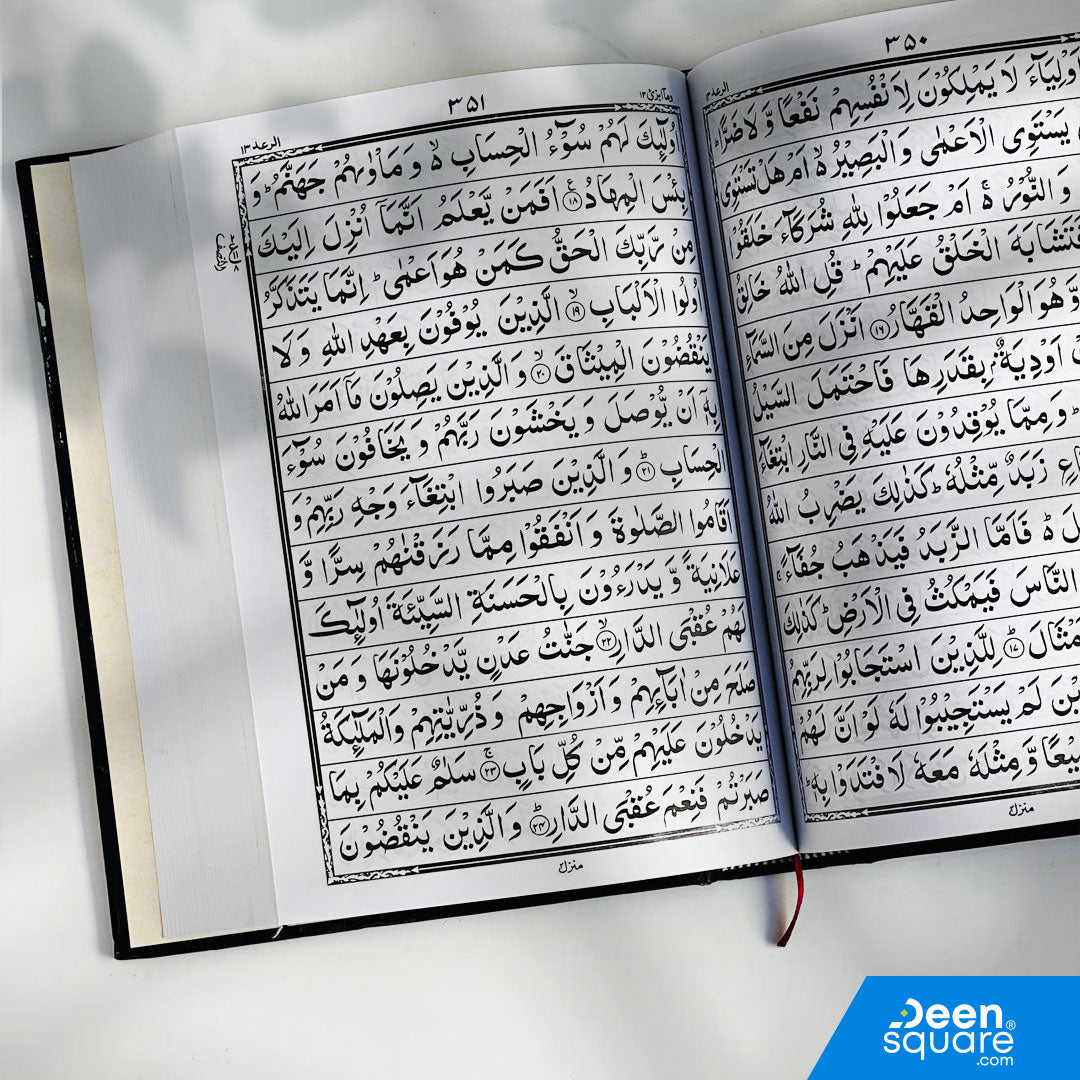 ٣٥٠
الرعد ١٣
اَوْلِيَآءَ لَا يَمْلِكُوْنَ لِاَنْفُسِهِمْ نَفْعًا وَّ لَا ضَرًّا ؕ
يَسْتَوِى الْاَعْمٰى وَالْبَصِيْرُ ۙ۬ اَمْ هَلْ تَسْتَوِى
وَ النُّوْرُ ۚ۬ اَمْ جَعَلُوْا لِلّٰهِ شُرَكَآءَ خَلَقُوْا
فَتَشَابَهَ الْخَلْقُ عَلَيْهِمْ ؕ قُلِ اللّٰهُ خَالِقُ
وَّ هُوَ الْوَاحِدُ الْقَهَّارُ ﴿۱۶﴾ اَنْزَلَ مِنَ السَّمَآءِ
اَوْدِيَةٌۢ بِقَدَرِهَا فَاحْتَمَلَ السَّيْلُ
وَ مِمَّا يُوْقِدُوْنَ عَلَيْهِ فِى النَّارِ ابْتِغَآءَ
زَبَدٌ مِّثْلُهٗ ؕ كَذٰلِكَ يَضْرِبُ اللّٰهُ
ؕ۬ فَاَمَّا الزَّبَدُ فَيَذْهَبُ جُفَآءً ۚ
النَّاسَ فَيَمْكُثُ فِى الْاَرْضِ ؕ كَذٰلِكَ
﴿۱۷﴾ لِلَّذِيْنَ اسْتَجَابُوْا لِرَبِّهِمُ
لَمْ يَسْتَجِيْبُوْا لَهٗ لَوْ اَنَّ لَهُمْ
وَّ مِثْلَهٗ مَعَهٗ لَافْتَدَوْا بِهٖ ؕ
منزل ٣
٣٥١
الرعد ١٣
وما ابرئ ١٣
اُولٰٓئِكَ لَهُمْ سُوْٓءُ الْحِسَابِ ۙ۬ وَ مَاْوٰىهُمْ جَهَنَّمُ ؕ وَ
بِئْسَ الْمِهَادُ ﴿۱۸﴾ اَفَمَنْ يَّعْلَمُ اَنَّمَآ اُنْزِلَ اِلَيْكَ
مِنْ رَّبِّكَ الْحَقُّ كَمَنْ هُوَ اَعْمٰى ؕ اِنَّمَا يَتَذَكَّرُ
اُولُوا الْاَلْبَابِ ﴿۱۹﴾ الَّذِيْنَ يُوْفُوْنَ بِعَهْدِ اللّٰهِ وَ لَا
يَنْقُضُوْنَ الْمِيْثَاقَ ﴿۲۰﴾ وَ الَّذِيْنَ يَصِلُوْنَ مَآ اَمَرَ اللّٰهُ
بِهٖٓ اَنْ يُّوْصَلَ وَ يَخْشَوْنَ رَبَّهُمْ وَ يَخَافُوْنَ سُوْٓءَ
الْحِسَابِ ﴿۲۱﴾ وَ الَّذِيْنَ صَبَرُوا ابْتِغَآءَ وَجْهِ رَبِّهِمْ وَ
اَقَامُوا الصَّلٰوةَ وَ اَنْفَقُوْا مِمَّا رَزَقْنٰهُمْ سِرًّا وَّ
عَلَانِيَةً وَّ يَدْرَءُوْنَ بِالْحَسَنَةِ السَّيِّئَةَ اُولٰٓئِكَ
لَهُمْ عُقْبَى الدَّارِ ﴿۲۲﴾ جَنّٰتُ عَدْنٍ يَّدْخُلُوْنَهَا وَ مَنْ
صَلَحَ مِنْ اٰبَآئِهِمْ وَ اَزْوَاجِهِمْ وَ ذُرِّيّٰتِهِمْ وَالْمَلٰٓئِكَةُ
يَدْخُلُوْنَ عَلَيْهِمْ مِّنْ كُلِّ بَابٍ ﴿۲۳﴾ سَلٰمٌ عَلَيْكُمْ بِمَا
صَبَرْتُمْ فَنِعْمَ عُقْبَى الدَّارِ ﴿۲۴﴾ وَ الَّذِيْنَ يَنْقُضُوْنَ
منزل ٣
Deen
square®
.com